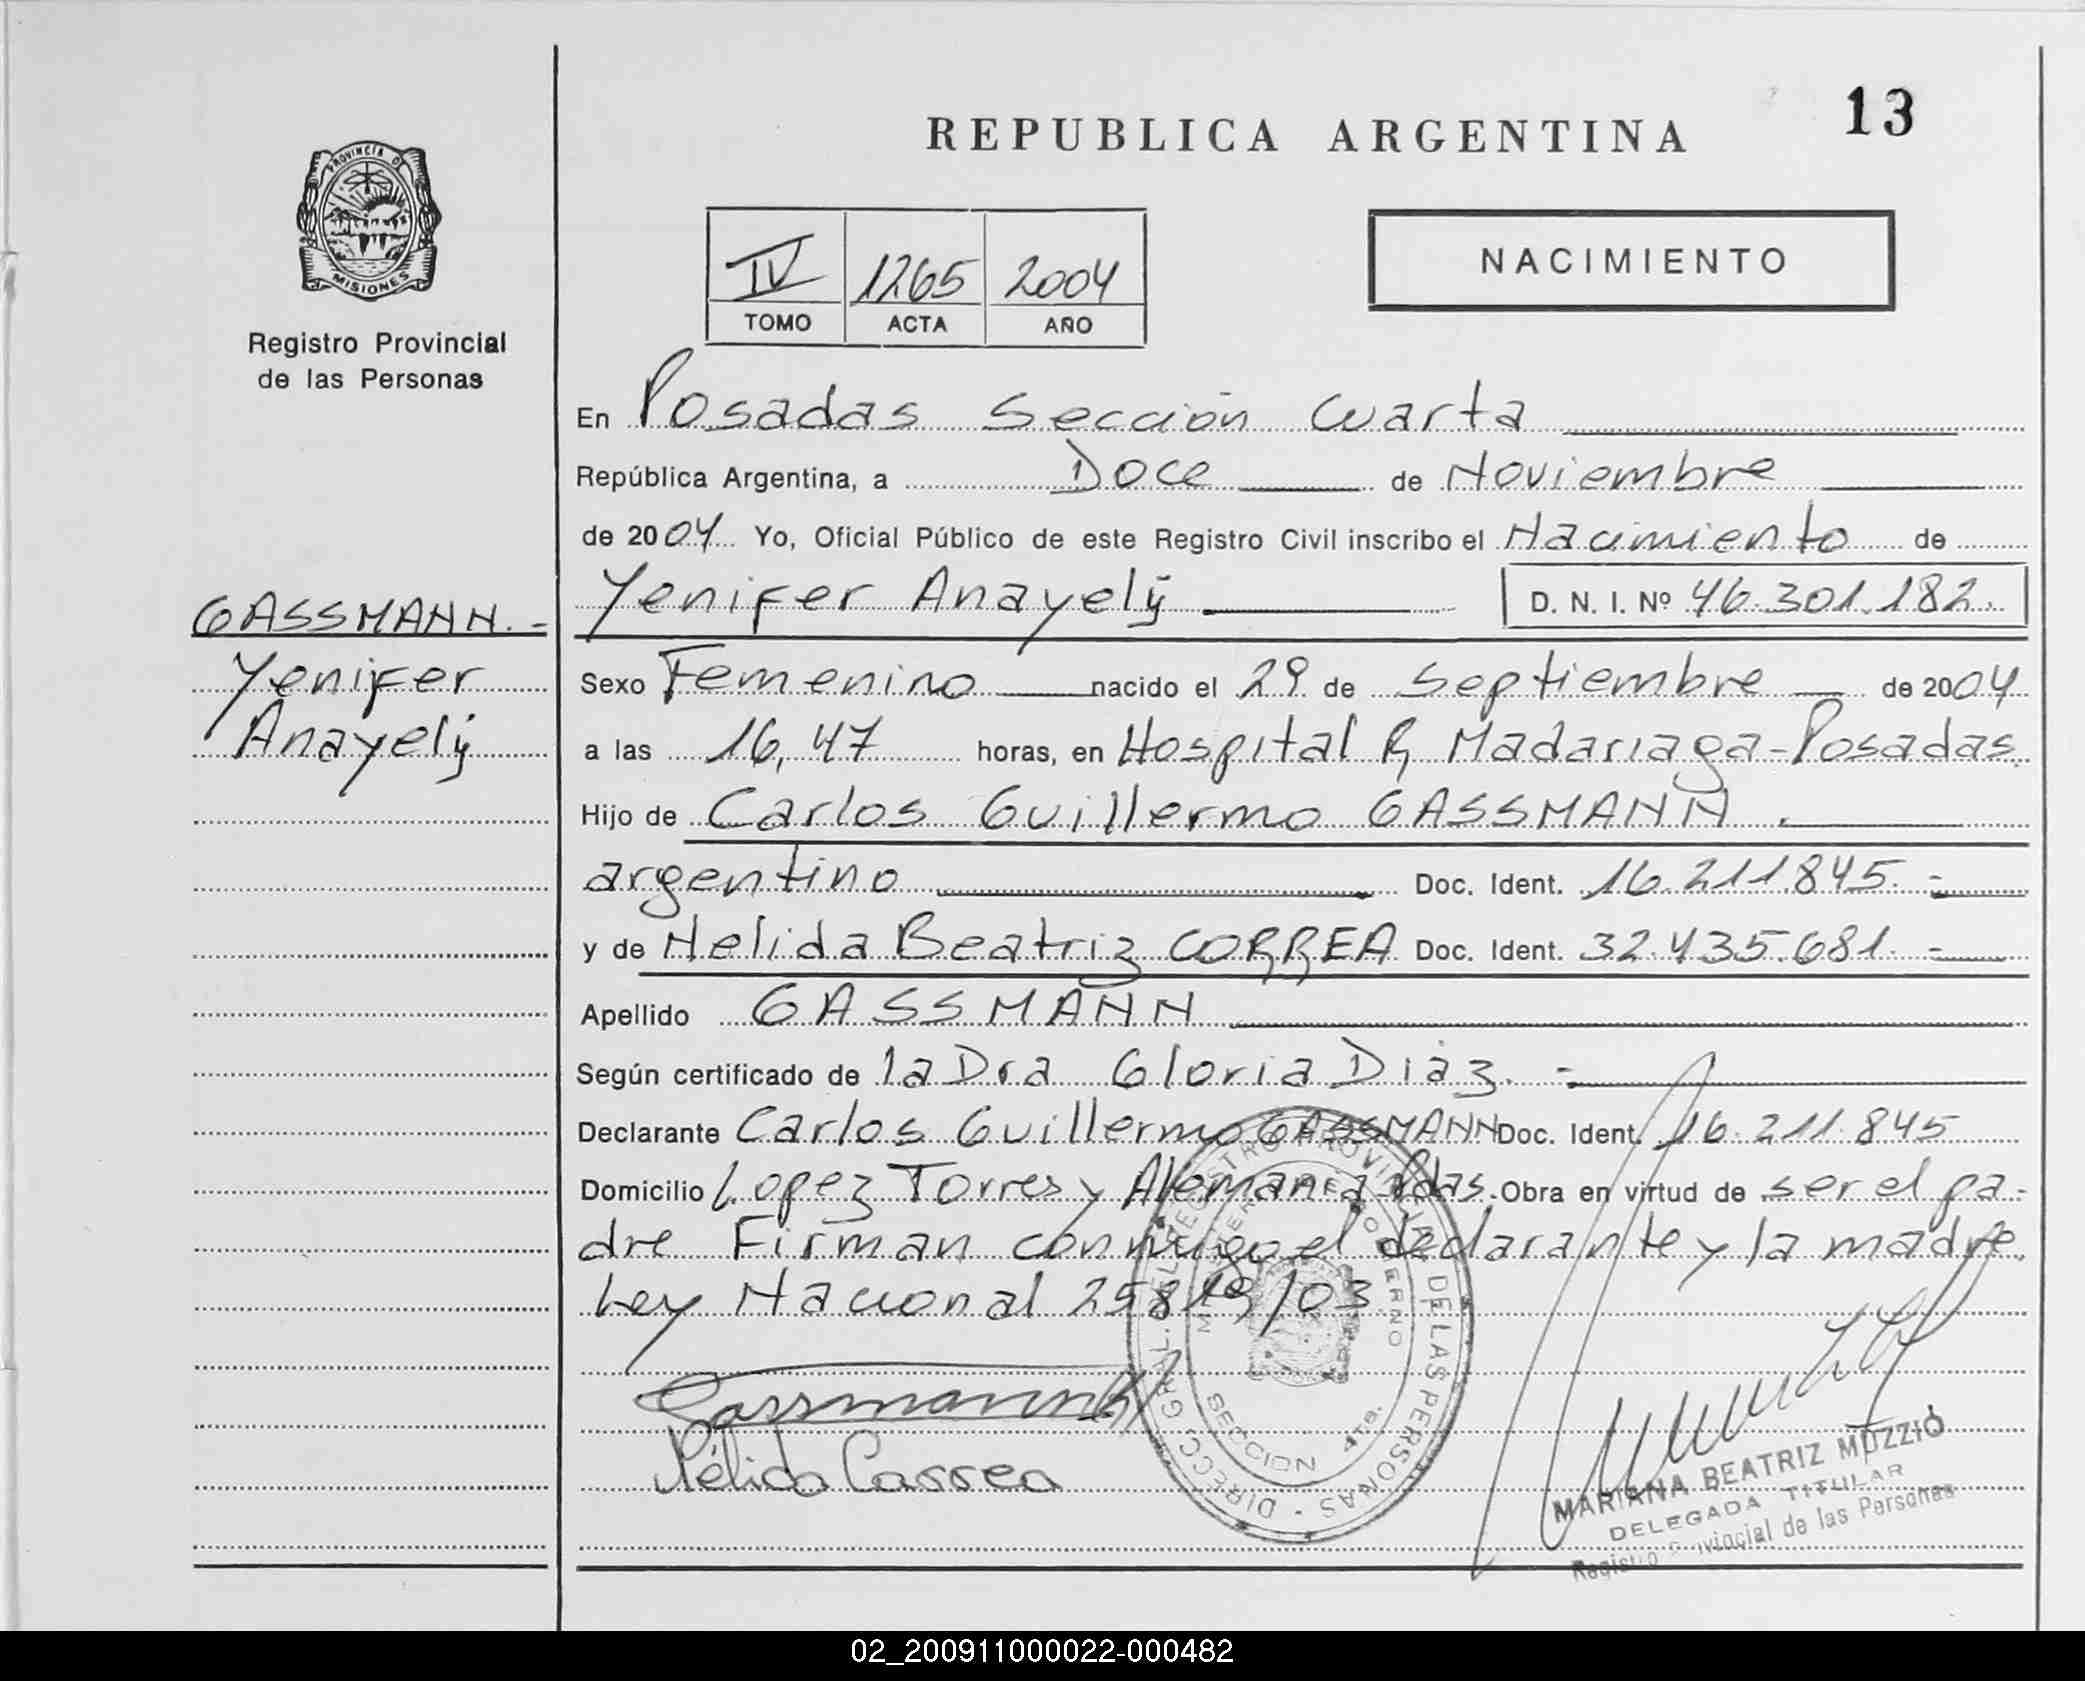 REPUBLICA ARGENTINA
13
PROVINCIA D
MISIONES
Registro Provincial
de las Personas
IV 1265 2004
TOMO ACTA AÑO
NACIMIENTO
En Posadas Sección Cuarta
República Argentina, a Doce de Noviembre
de 2004 Yo, Oficial Público de este Registro Civil inscribo el Nacimiento de
Yenifer Anayely D. N. I. Nº 46.301.182.
GASSMANN.-
Yenifer
Anayely
Sexo Femenino nacido el 29 de Septiembre de 2004
a las 16,47 horas, en Hospital R, Madariaga-Posadas.
Hijo de Carlos Guillermo GASSMANN.
argentino Doc. Ident. 16.211.845.-
y de Nelida Beatriz CORREA Doc. Ident. 32.435.681.-
Apellido GASSMANN
Según certificado de la Dra Gloria Diaz.-
Declarante Carlos Guillermo GASSMANN Doc. Ident. 16.211.845
Domicilio Lopez Torres y Alemania Pdas. Obra en virtud de ser el pa-
dre Firman conmigo el declarante y la madre.
Ley Nacional 25819/03
Gassmann
Nélida Correa
DIRECC. GRAL. DEL REGISTRO PROVINCIAL DE LAS PERSONAS
MINISTERIO DE GOBIERNO
SECCION 4ta.
MARIANA BEATRIZ MUZZIO
DELEGADA TITULAR
Registro Provincial de las Personas
02_200911000022-000482